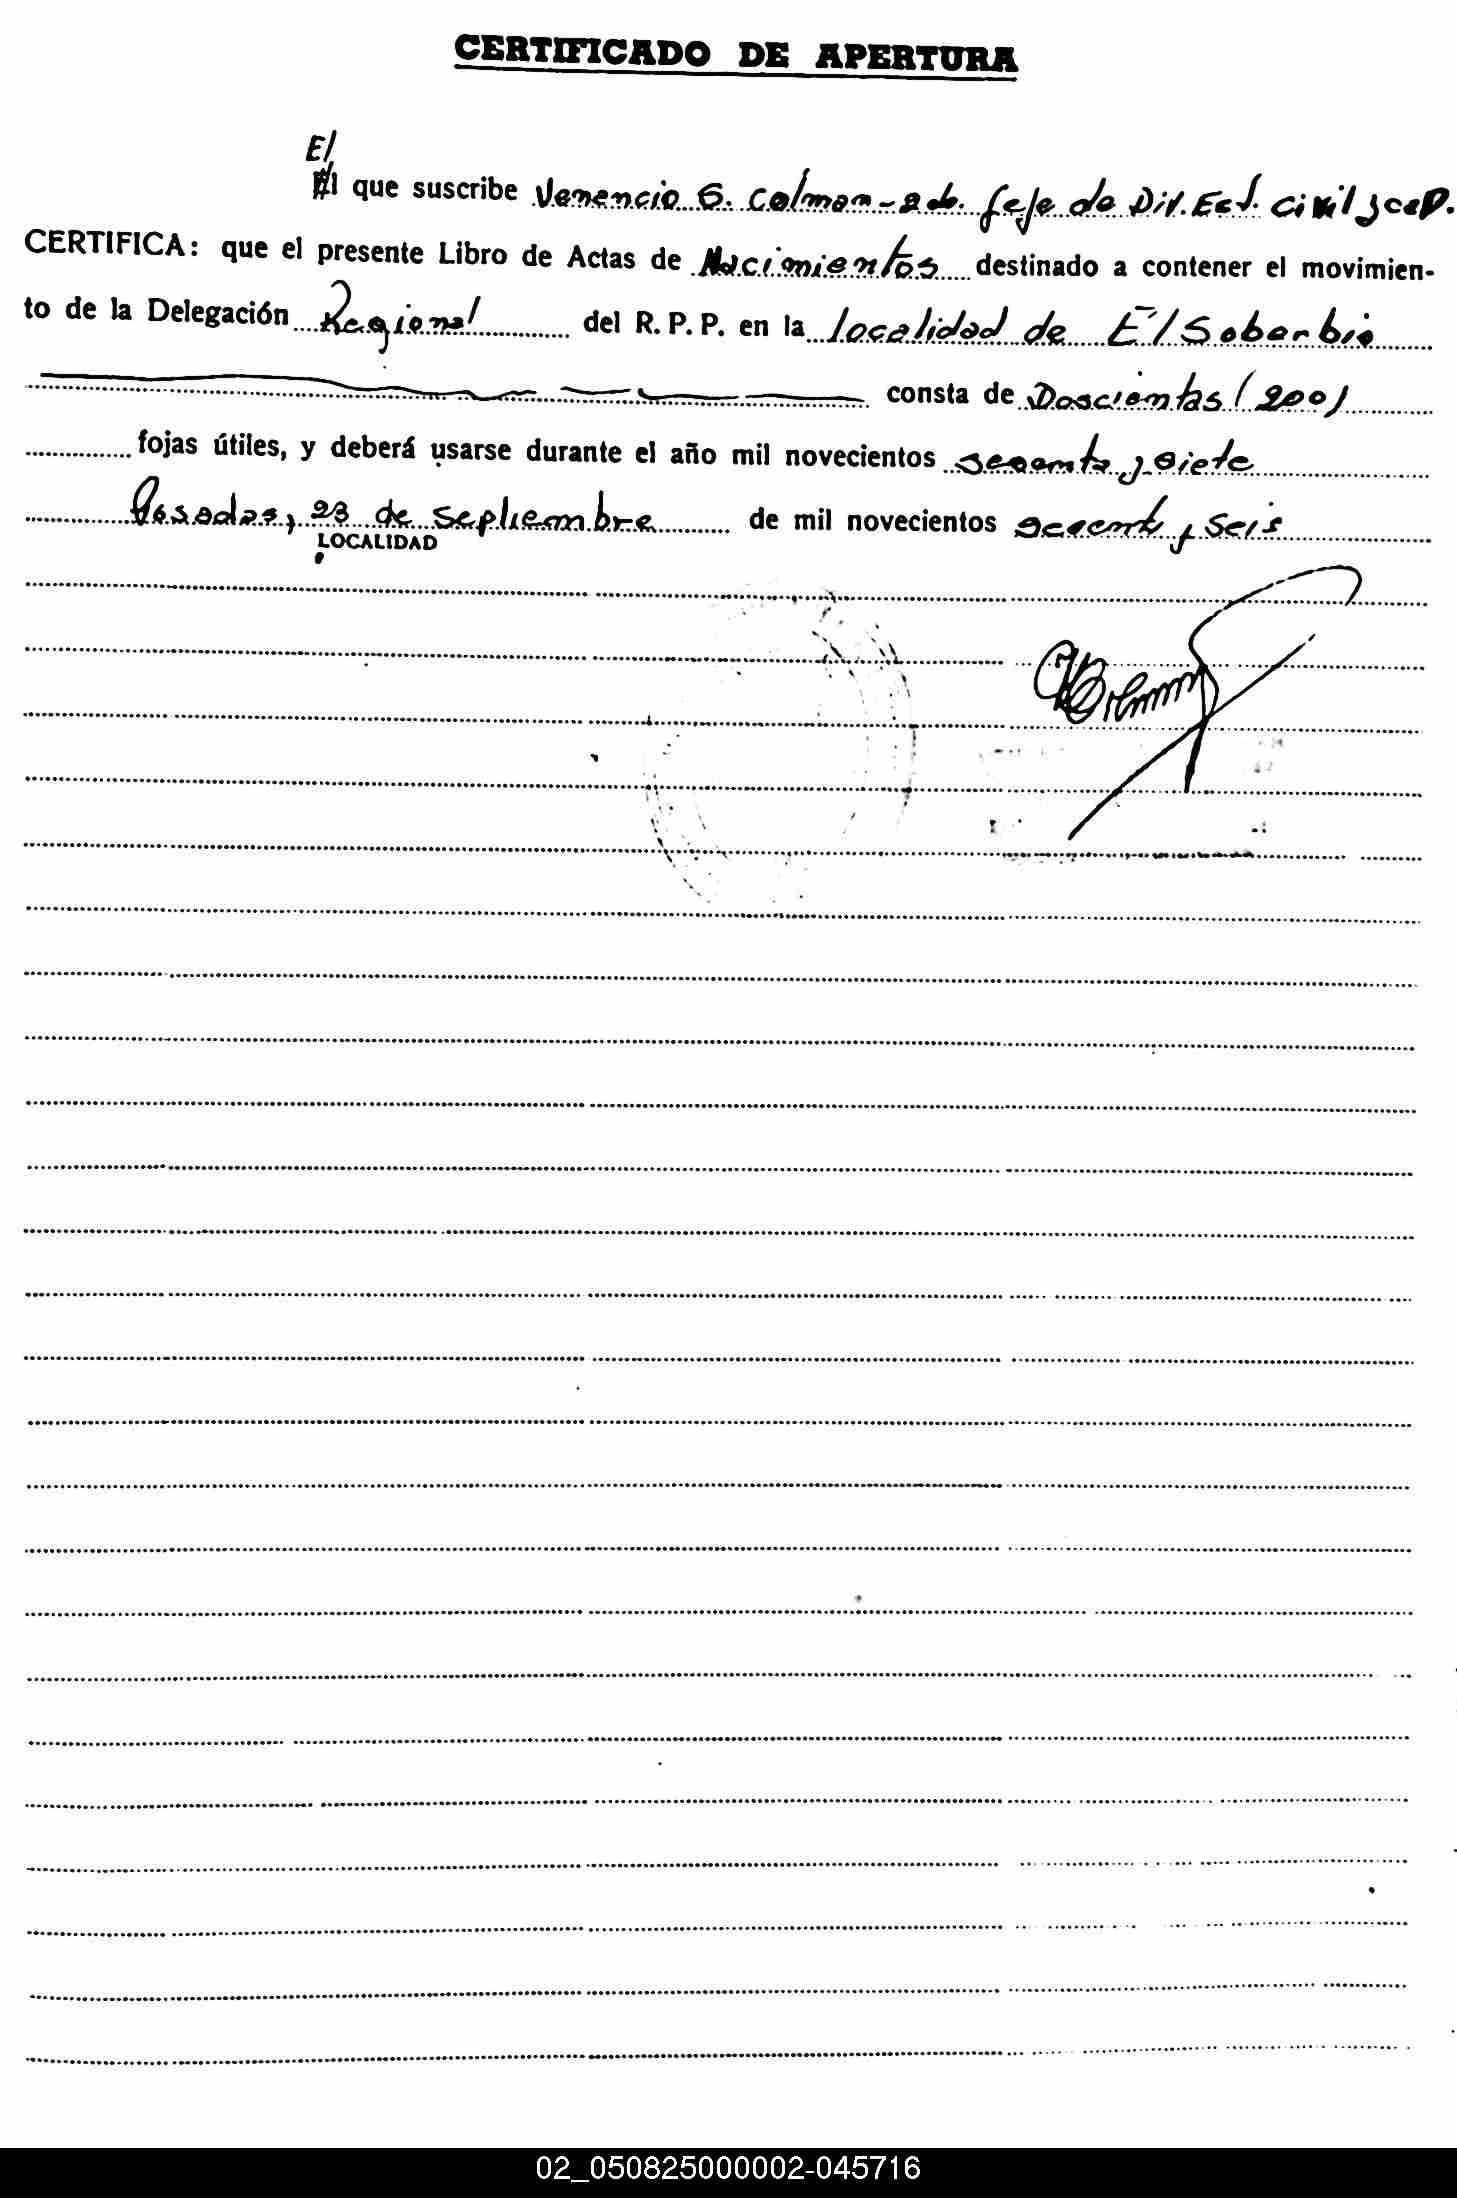 CERTIFICADO DE APERTURA
El
El que suscribe Venancio G. Colman - 2do. Jefe de Div. Est. Civil y cap.
CERTIFICA: que el presente Libro de Actas de Nacimientos destinado a contener el movimien-
to de la Delegación Regional del R. P. P. en la localidad de El Soberbio
consta de Doscientas (200)
fojas útiles, y deberá usarse durante el año mil novecientos sesenta y siete
Posadas, 23 de septiembre de mil novecientos sesenta y seis
LOCALIDAD
02_050825000002-045716